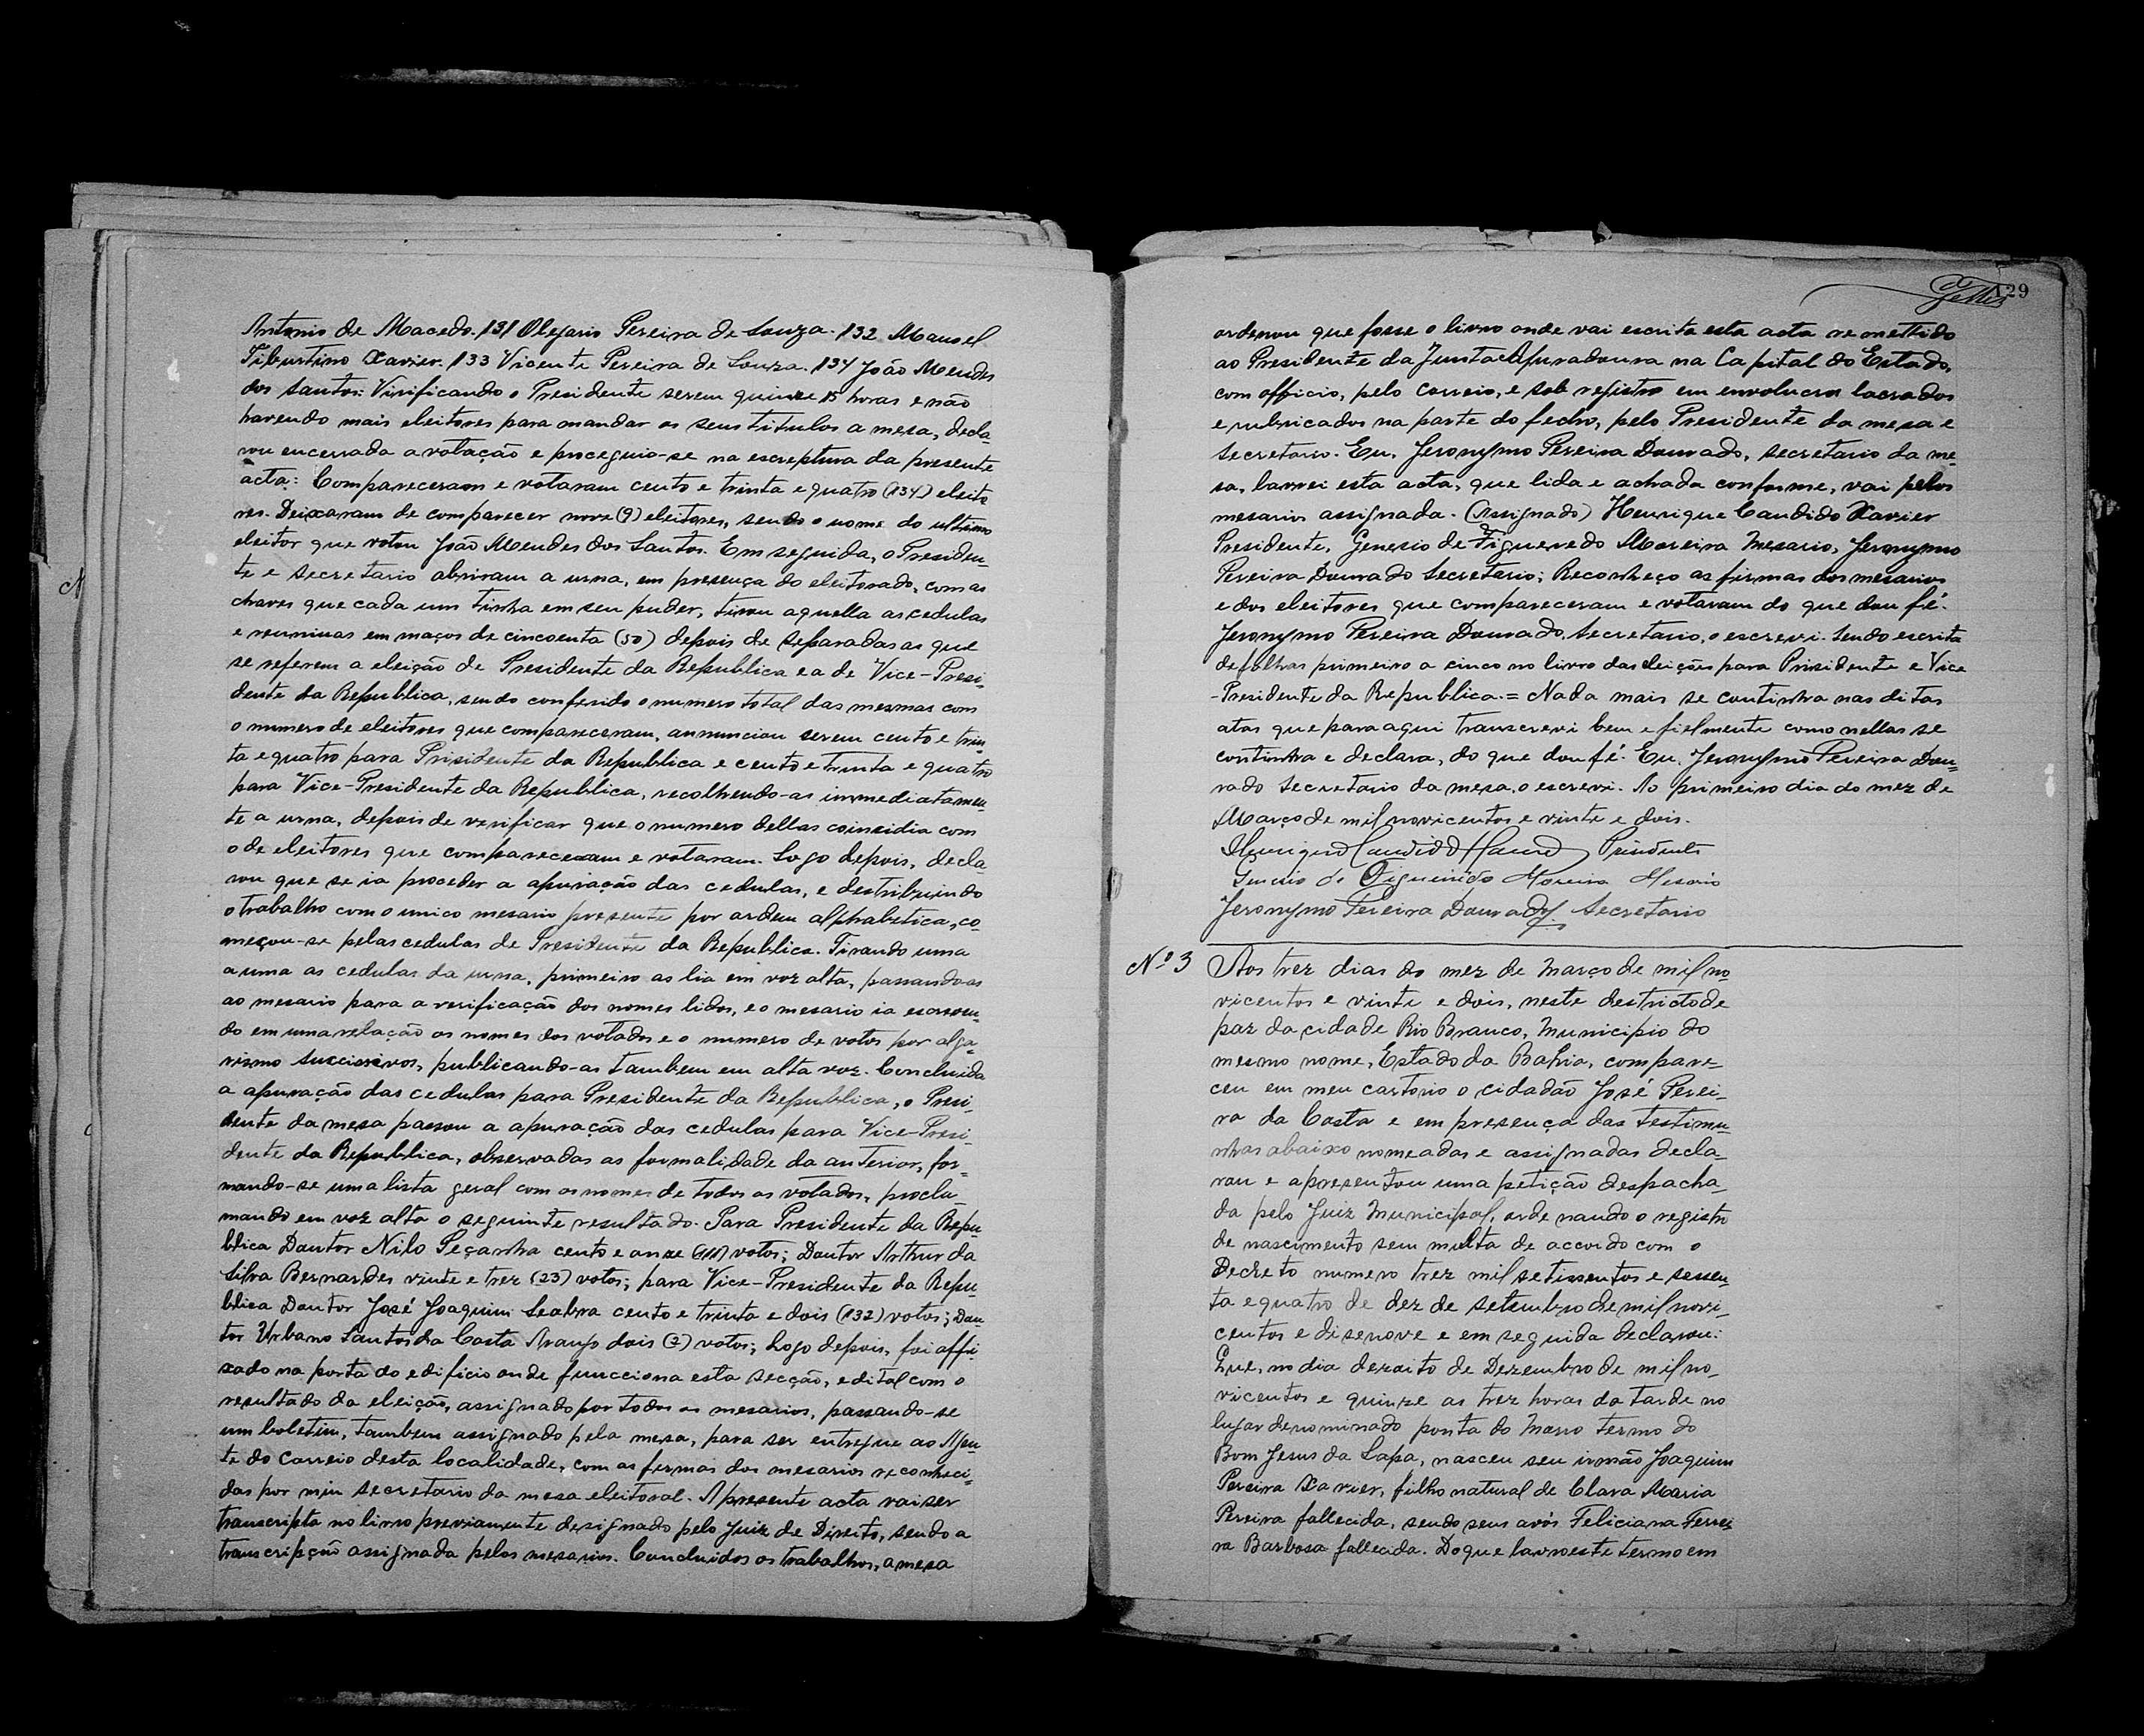 Antonio de Macedo. 131 Olegario Pereira de Souza. 132 Manoel
Tiburtino Xavier. 133 Vicente Pereira de Souza. 134 João Mendes
dos Santos: Virificando o Presidente serem quinze 15 horas e não
havendo mais eleitores para mandar os seus titulos a mesa, decla-
rou encerrada a votação e proceguio-se na escreptura da presente
acta: Compareceram e votaram cento e trinta e quatro (134) eleito
res. Deixaram de comparecer nove (9) eleitores, sendo o nome do ultimo
eleitor que votou João Mendes dos Santos. Em seguida, o Presiden-
te e Secretario abriram a urna, em presença do eleitorado, com as
chaves que cada um tinha em seu puder, tirou aquella as cedulas
e reuniuas em maços de cincoenta (50) depois de separadas as que
se referem a eleição de Presidente da Republica e a de Vice-Presi-
dente da Republica, sendo conferido o numero total das mesmas com
o numero de eleitores que compareceram, annunciou serem cento e trin
ta e quatro para Prisidente da Republica e cento e trinta e quatro
para Vice-Presidente da Republica, recolhendo-as immediatamen-
te a urna, depois de verificar que o numero dellas coinsidia com
o de eleitores que compareceram e votaram. Logo depois, decla
rou que se ia proceder a apuração das cedulas, e destribuindo
o trabalho com o unico mesario presente por ordem alphabetica, co-
meçou-se pelas cedulas de Presidente da Republica. Tirando uma
a uma as cedulas da urna, primeiro as lia em voz alta, passando-as
ao mesario para a verificação dos nomes lidos, e o mesario ia escreven-
do em uma relação os nomes dos votados e o numero de votos por alga-
rismo successivos, publicando-as tambem em alta voz. Concluida
a apuração das cedulas para Presidente da Republica, o Presi-
dente da mesa passou a apuração das cedulas para Vice-Presi-
dente da Republica, observadas as formalidade da anterior, for-
mando-se uma lista geral com os nomes de todos os votados, procla-
mando em voz alta o seguinte resultado. Para Presidente da Repu-
blica Doutor Nilo Peçanha cento e onze (111) votos; Doutor Arthur da
Silva Bernardes vinte e trez (23) votos; para Vice-Presidente da Repu-
blica Doutor José Joaquim Seabra cento e trinta e dois (132) votos; Dou-
tor Urbano Santos da Costa Araujo dois (2) votos; Logo depois, foi affi-
xado na porta do edificio onde funcciona esta secção, edital com o
resultado da eleição, assignado por todos os mesarios, passando-se
um boletim, tambem assignado pela mesa, para ser entregue ao Agen-
te do Correio desta localidade, com as firmas dos mesarios reconheci-
das por mim secretario da mesa eleitoral. A presente acta vai ser
transcripta no livro previamente designado pelo Juiz de Direito, sendo a
transcripção assignada pelos mesarios. Concluidos os trabalhos, a mesa
129
ordenou que fosse o livro onde vai escrita esta acta remettido
ao Presidente da Junta Apuradoura na Capital do Estado,
com officio, pelo correio, e sob registro em envolucro lacrados
e rubricados na parte do fecho, pelo Presidente da mesa e
Secretario. Eu, Jeronymo Pereira Dourado, secretario da me-
sa, lavrei esta acta, que lida e achada conforme, vai pelos
mesarios assignada. (Assignado) Henrique Candido Xavier
Presidente, Genesio de Figueredo Moreira Mesario, Jeronymo
Pereira Dourado Secretario; Reconheço as firmas dos mesarios
e dos eleitores que compareceram e votaram do que dou fé.
Jeronymo Pereira Dourado, Secretario, o escrevi. Sendo escrita
de folhas primeiro a cinco no livro das eleições para Prisidente e Vice
-Presidente da Republica. = Nada mais se continha nas ditas
atas que para aqui transcrevi bem e fielmente como nellas se
continha e declara, do que dou fé. Eu, Jeronymo Pereira Dou-
rado Secretario da mesa, o escrevi. Ao primeiro dia do mez de
Março de mil novicentos e vinte e dois.
Henrique Candido Xavier Presidente
Genesio de Figueirêdo Moreira Mesario
Jeronymo Pereira Dourado, Secretario
Nº 3 Aos trez dias do mez de Março de mil no-
vicentos e vinte e dois, neste destricto de
paz da cidade Rio Branco, Municipio do
mesmo nome, Estado da Bahia, compare-
ceu em meu cartorio o cidadão José Perei-
ra da Costa e em presença das testimu-
nhas abaixo nomeadas e assignadas decla-
rou e apresentou uma petição despacha-
da pelo Juiz Municipal, ordenando o registro
de nascimento sem multa de accordo com o
Decreto numero trez mil setissentos e sessen-
ta e quatro de dez de setembro de mil novi-
centos e disenove e em seguida declarou:
Que, no dia dezoito de Dezembro de mil no-
vicentos e quinze as trez horas da tarde no
lugar denominado ponta do Morro termo do
Bom Jesus da Lapa, nasceu seu irmão Joaquim
Pereira Xavier, filho natural de Clara Maria
Pereira fallecida, sendo seus avós Feliciana Ferrei
ra Barbosa fallecida. Do que lavro este termo em